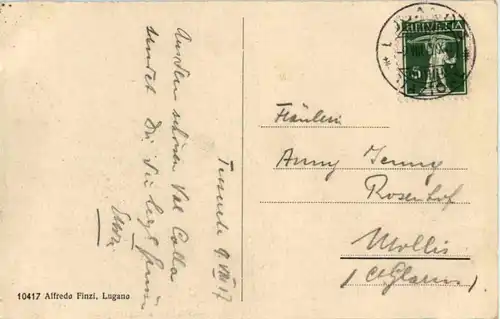 Tesserete 9. VIII 17
Aus dem schönen Val Colla
sendet Dir die herzl. Grüsse
10417 Alfredo Finzi, Lugano
HELVETIA
5
Fräulein
Anny Jenny
Rosenhof
Mollis
(Ct Glarus)